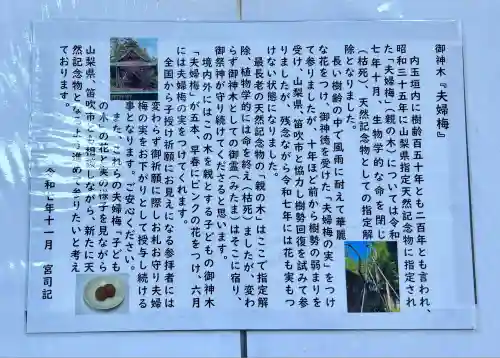 御神木『夫婦梅』
内玉垣内に樹齢百五十年とも二百年とも言われ、
昭和三十五年に山梨県指定天然記念物に指定され
た「夫婦梅」（親の木）については令和
七年十月、生物学的な命を閉じ
（枯死）、天然記念物としての指定解
除となりました。
長い樹齢の中で風雨に耐えて華麗
な花をつけ、御神徳を受けた「夫婦梅の実」をつけ
て参りましたが、十年ほど前から樹勢の弱まりを
受け、山梨県・笛吹市と協力し樹勢回復を試みて参
りましたが、残念ながら令和七年には花も実もつ
けない状態になりました。
最長老の天然記念物の「親の木」はここで指定解
除、植物学的には命を終え（枯死）ましたが、変わ
らず御神木としての御霊（みたま）はそこに宿り、
御祭神が守り続けてくださると思います。
境内外にはこの木を親とする子どもの御神木
「夫婦梅」が五本、早春にピンクの花をつけ、六月
には夫婦梅の実をつけてくれます。
全国から子授け祈願にお見えになる参拝者には
変わらず御祈願に際しお札お守り夫婦
梅の実をお下がりとして授与し続ける
事となります。ご安心ください。
また、これらの夫婦梅「子ども
の木」の花と実の様子を見ながら
山梨県、笛吹市とも相談しながら、新たに天
然記念物となるよう進めて参りたいと考え
ております。
令和七年十一月　宮司記